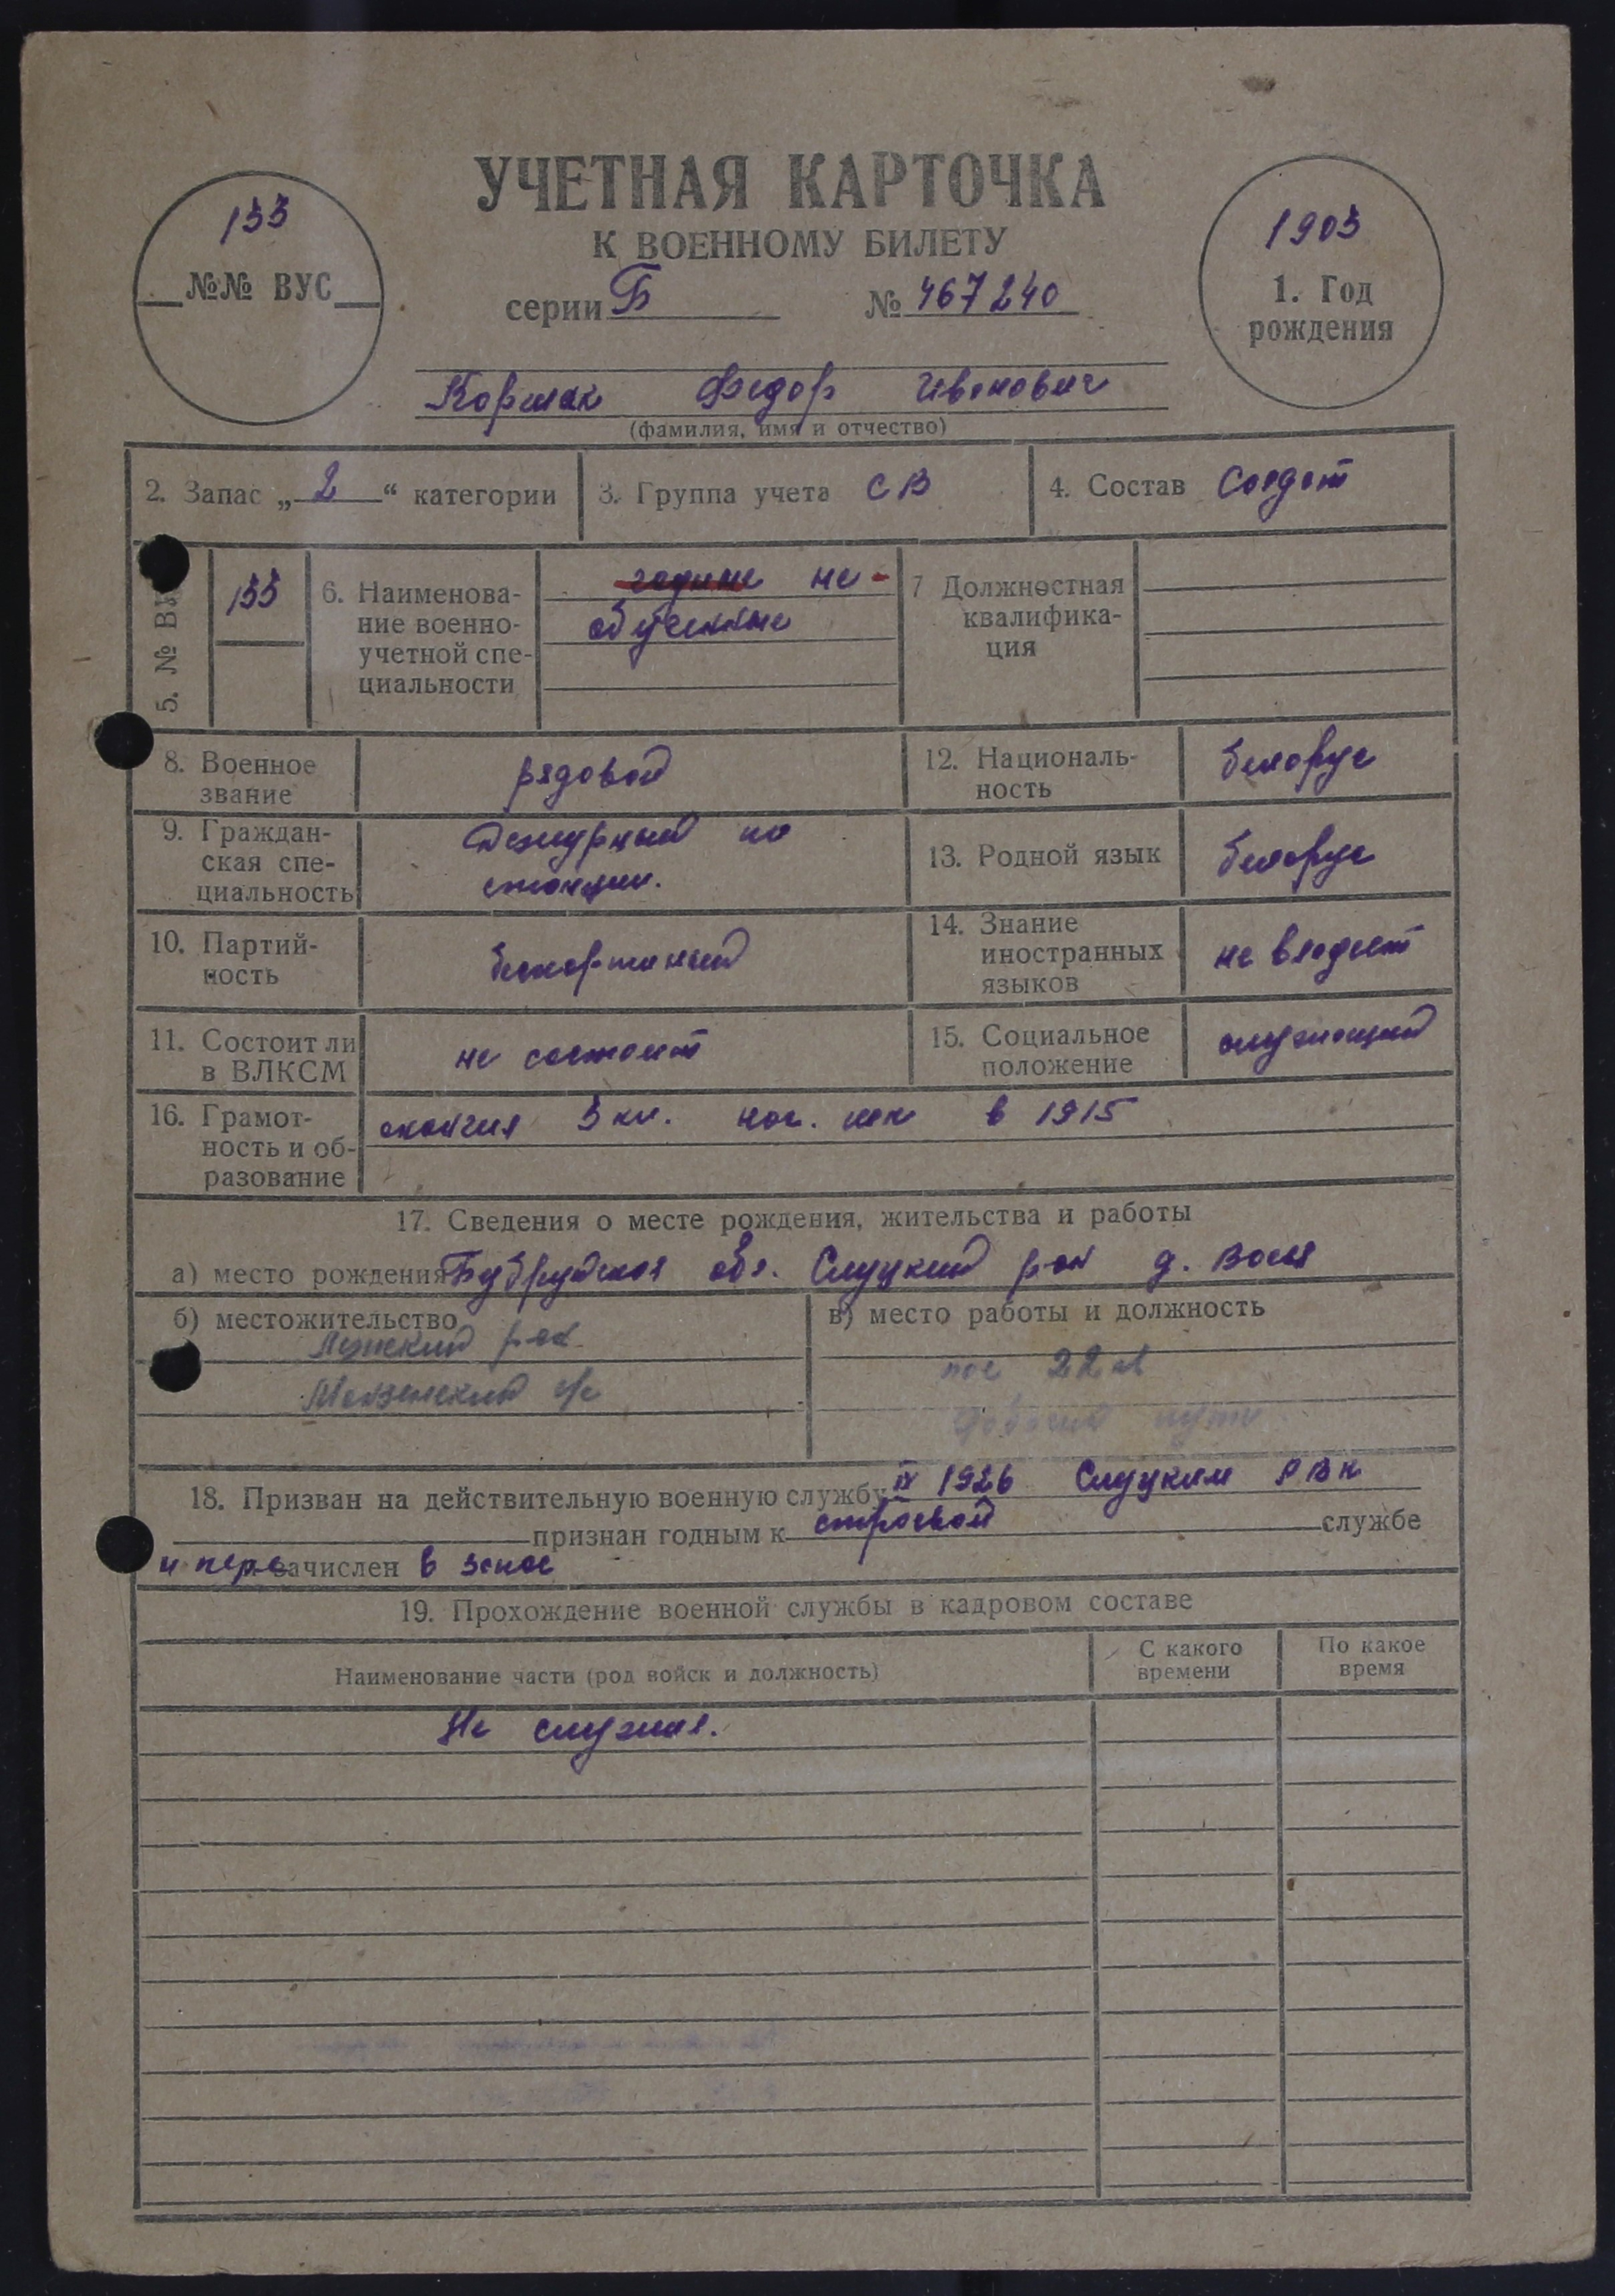 УЧЕТНАЯ КАРТОЧКА
К ВОЕННОМУ БИЛЕТУ
серии Б № 467240
133
№№ ВУС
1903
1. Год
рождения
Коршак Федор Иванович
(фамилия, имя и отчество)
2. Запас „2“ категории
3. Группа учета СВ
4. Состав Солдат
5. № ВУ
133
6. Наименова-
ние военно-
учетной спе-
циальности
годные не-
обученные
7 Должностная
квалифика-
ция
8. Военное
звание
рядовой
12. Националь-
ность
белорус
9. Граждан-
ская спе-
циальность
Дежурный по
станции.
13. Родной язык
белорус
10. Партий-
ность
беспартийный
14. Знание
иностранных
языков
не владеет
11. Состоит ли
в ВЛКСМ
не состоит
15. Социальное
положение
служащий
16. Грамот-
ность и об-
разование
окончил 3 кл. нач. шк в 1915
17. Сведения о месте рождения, жительства и работы
а) место рождения Бубруйская обл. Слуцкий р-он д.
б) местожительство
Лужский р-он
с/с
в) место работы и должность
пос 22
пути
18. Призван на действительную военную службу IX 1926 Слуцким РВК
признан годным к строевой службе
и перезачислен в запас
19. Прохождение военной службы в кадровом составе
Наименование части (род войск и должность)
С какого
времени
По какое
время
Не служил.